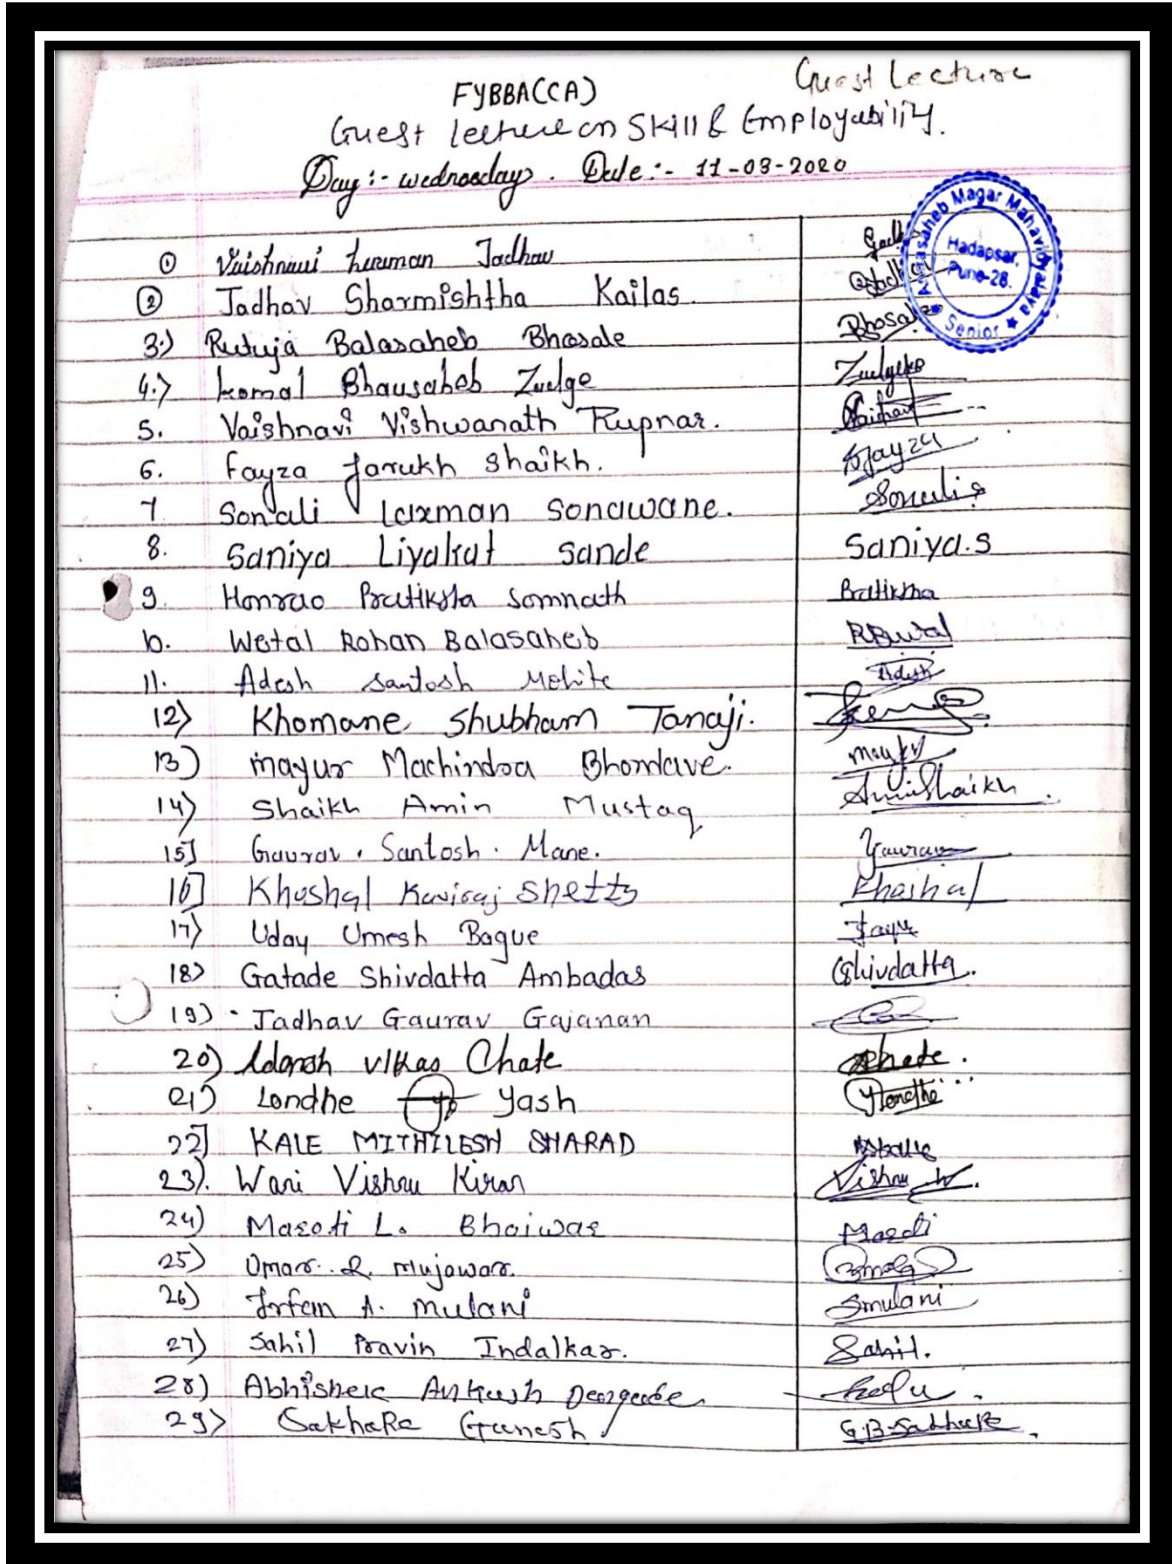 Guest Lecture
FYBBA(CA)
Guest lecture on Skill & Employability.
Day:- wednesday. Date:- 11-03-2020
Annasaheb Magar Mahavidyalaya
Hadapsar,
Pune-28.
★ Senior ★
① Vaishnavi Jadhav
② Jadhav Sharmishtha Kailas.
3.) Rutuja Balasaheb Bhosale Bhosale
4.) komal Bhausaheb Zudge
5. Vaishnavi Vishwanath Rupnar.
6. Fayza farukh shaikh. Fayza
7 Sonali Laxman Sonawane. Sonali
8. Saniya Liyakat Sande Saniya.S
9. Honrao Pratiksha Somnath Pratiksha
10. Wetal Rohan Balasaheb
11. Adesh Santosh Mohite Adesh
12) Khomane Shubham Tanaji.
13) mayur Machindra Bhondave. mayur
14) Shaikh Amin Mustaq AminShaikh.
15] Gaurav. Santosh. Mane. Gaurav
16] Khushal Kaviraj Shetty Khushal
17) Uday Umesh Bague
18) Gatade Shivdatta Ambadas Shivdatta.
19) Jadhav Gaurav Gajanan
20) Adarsh vikas Chate Chate.
21) Londhe Yash
22] KALE MITHILESH SHARAD
23). Wani Vishnu Kiran Vishnu W.
24) Maroti L. Bhaiwar Maroti
25) Omar. R. Mujawar.
26) Irfan A. mulani mulani
27) Sahil Pravin Indalkar. Sahil.
28) Abhishek Ankush
29) SakhaRe Ganesh G.B.SakhaRe